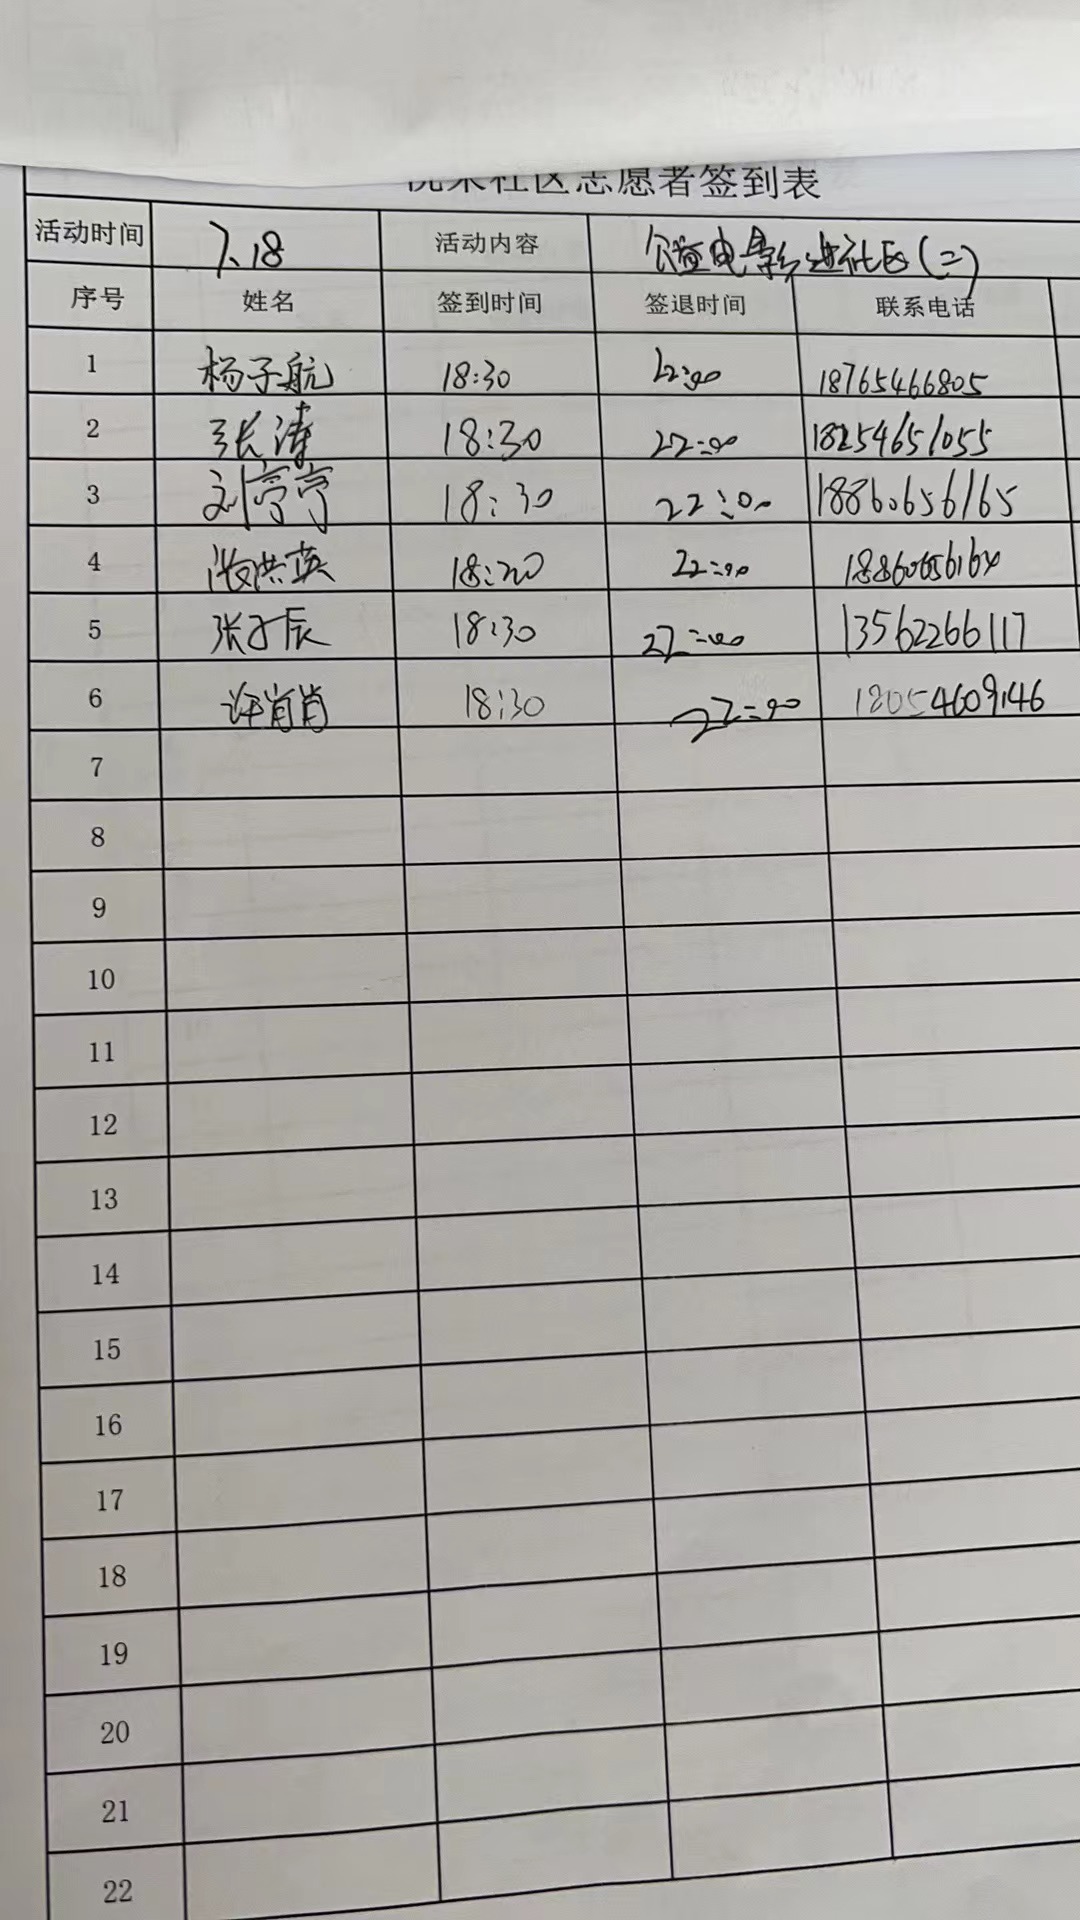 社区志愿者签到表
活动时间 7.18 活动内容 公益电影进社区(二)
序号 姓名 签到时间 签退时间 联系电话
1 杨子航 18:30 22:00 18765466805
2 张涛 18:30 22:00 18254651055
3 刘亭亭 18:30 22:00 18860656165
4 张洪英 18:20 22:00 18860656164
5 张子辰 18:30 22:00 13562266117
6 许肖肖 18:30 22:00 18054609146
7
8
9
10
11
12
13
14
15
16
17
18
19
20
21
22